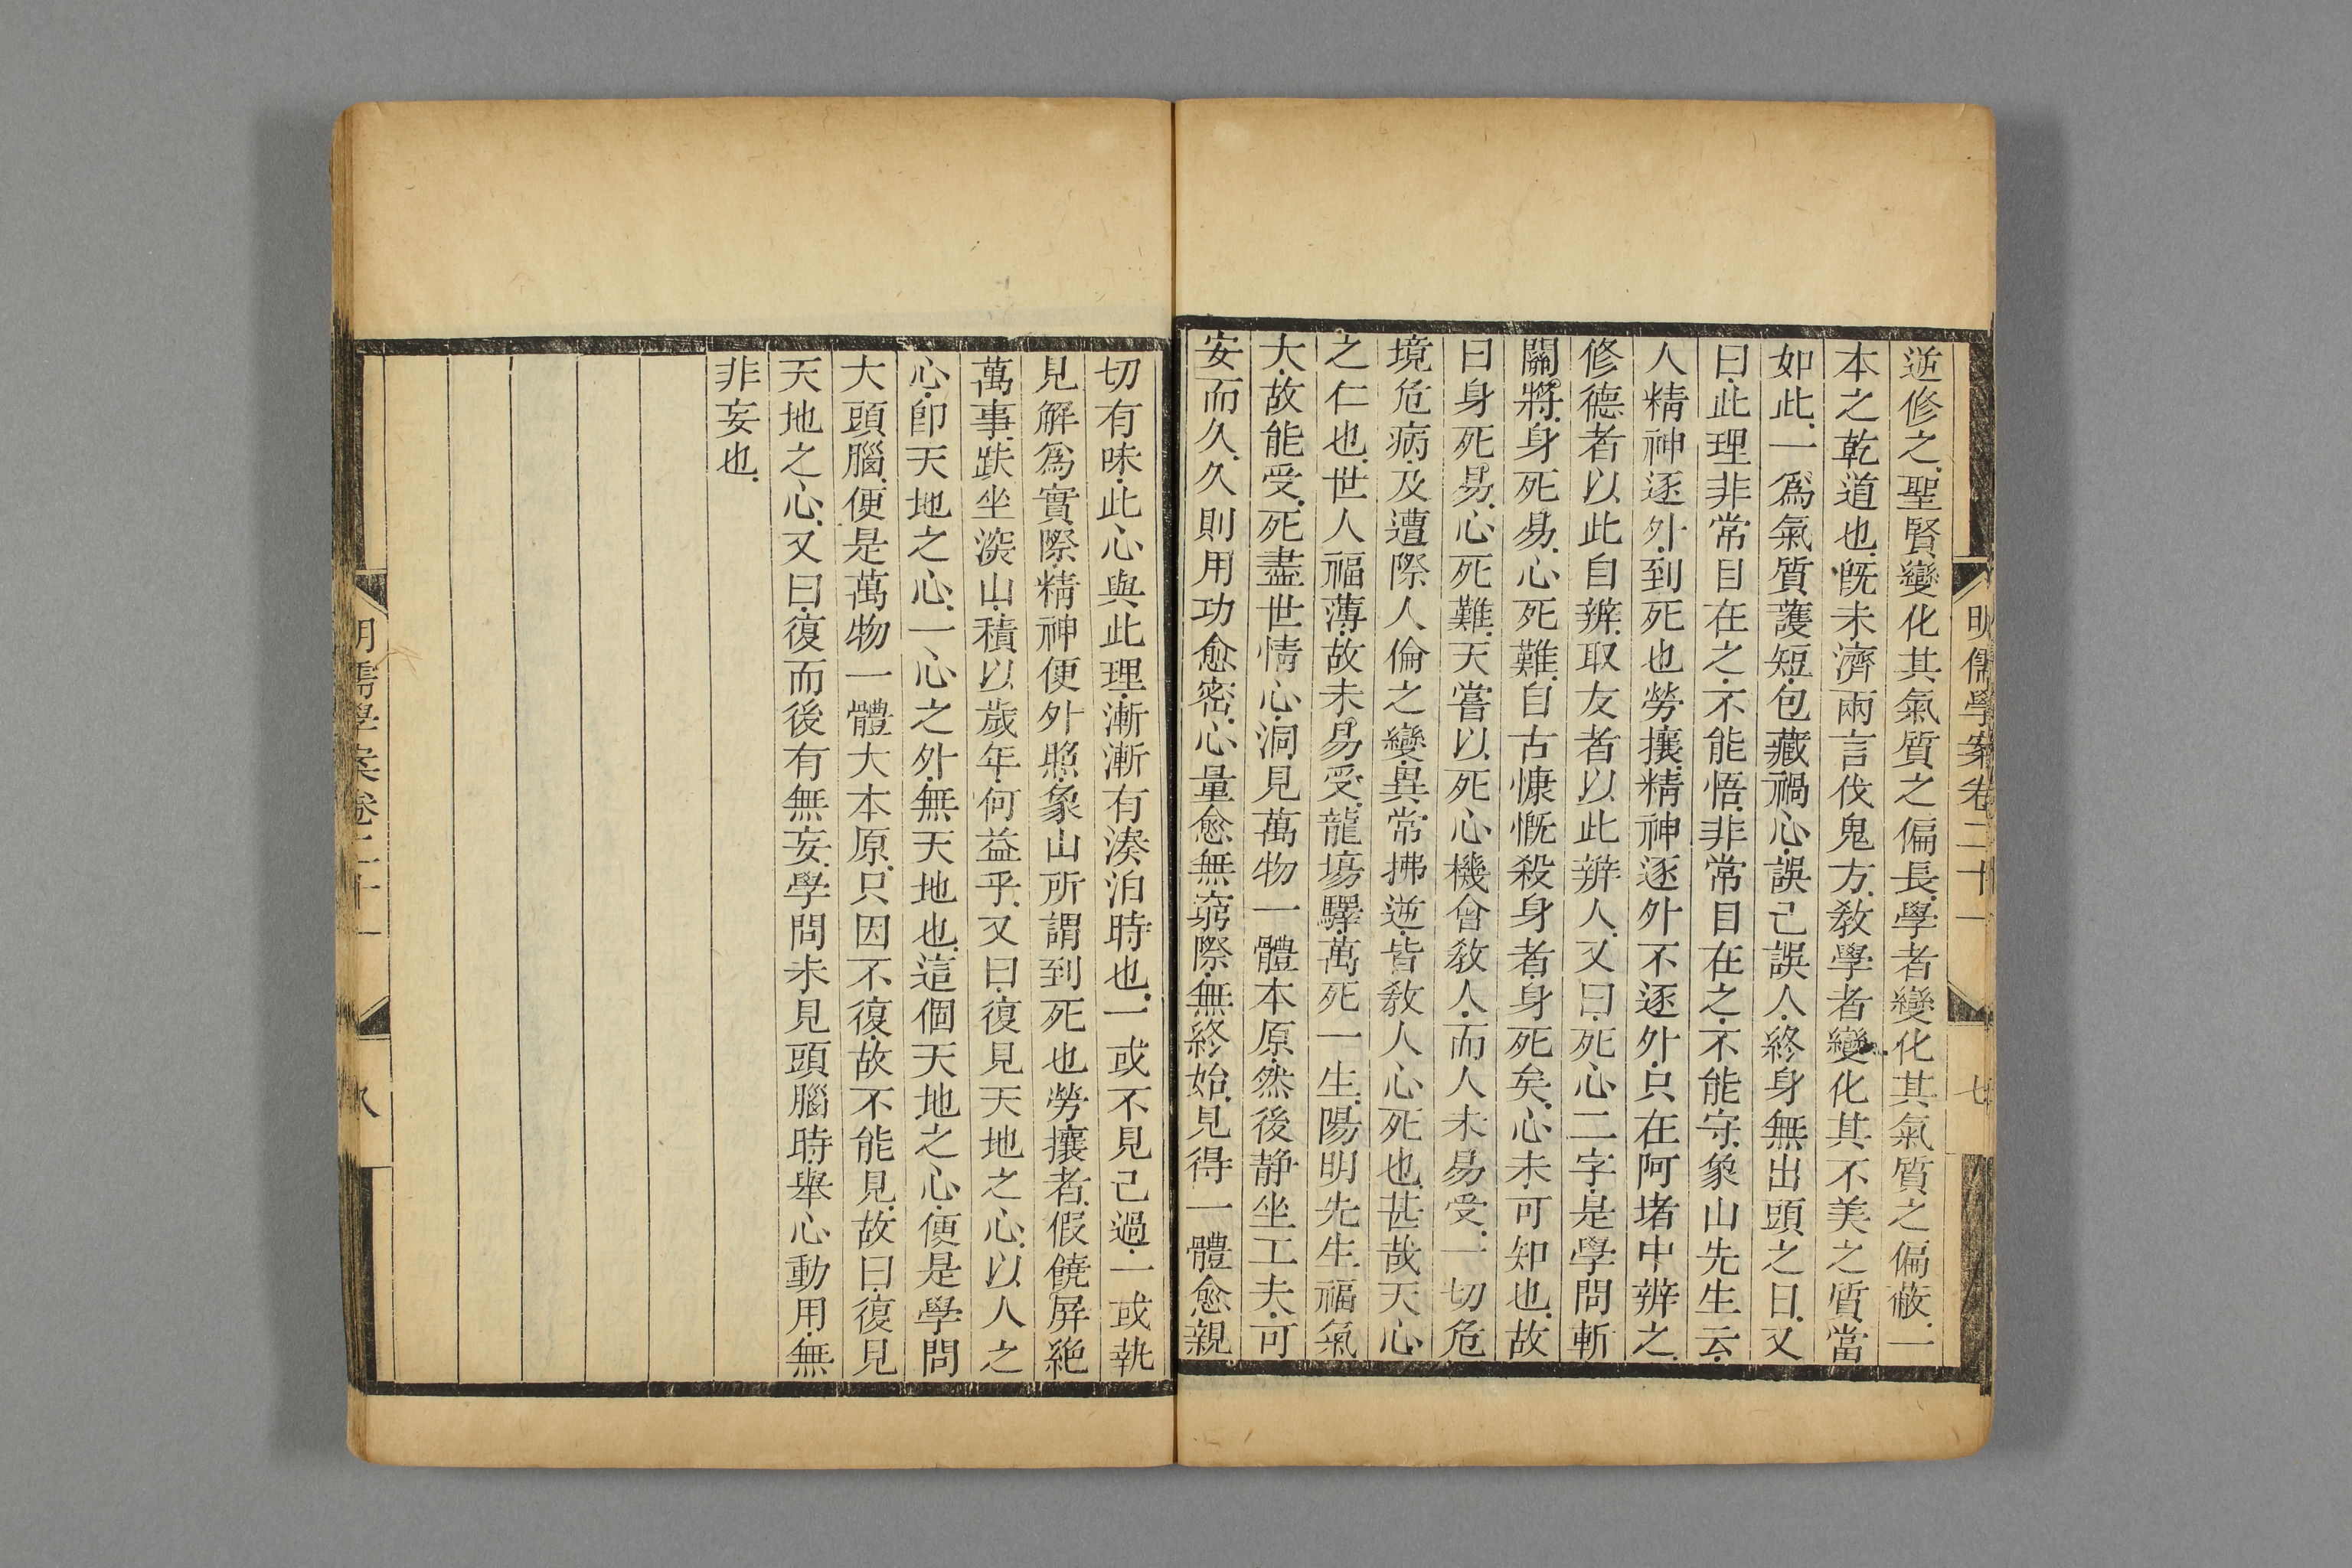 明儒學案卷二十一
七
逆修之聖賢變化其氣質之偏長學者變化其氣質之偏蔽一
本之乾道也旣未濟兩言伐鬼方敎學者變化其不美之質當
如此一爲氣質護短包藏禍心誤己誤人終身無出頭之日又
曰此理非常目在之不能悟非常目在之不能守象山先生云
人精神逐外到死也勞攘精神逐外不逐外只在阿堵中辨之
修德者以此自辨取友者以此辨人又曰死心二字是學問斬
關將身死易心死難自古慷慨殺身者身死矣心未可知也故
曰身死易心死難天嘗以死心機會敎人而人未易受一切危
境危病及遭際人倫之變異常拂逆皆敎人心死也甚哉天心
之仁也世人福薄故未易受龍塲驛萬死一生陽明先生福氣
大故能受死盡世情心洞見萬物一體本原然後靜坐工夫可
安而久久則用功愈密心量愈無窮際無終始見得一體愈親
切有味此心與此理漸漸有湊泊時也一或不見己過一或執
見解爲實際精神便外照象山所謂到死也勞攘者假饒屏絶
萬事趺坐深山積以歲年何益乎又曰復見天地之心以人之
心卽天地之心一心之外無天地也這個天地之心便是學問
大頭腦便是萬物一體大本原只因不復故不能見故曰復見
天地之心又曰復而後有無妄學問未見頭腦時舉心動用無
非妄也
明儒學案卷二十一
八